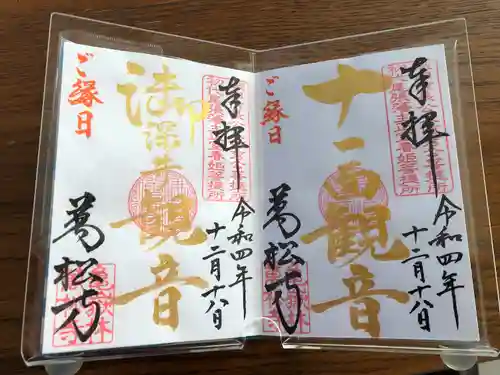 奉拝
令和四年
十二月十八日
十一面観音
ご縁日
萬松寺
亀嶽林
奉拝
令和四年
十二月十八日
御深井観音
ご縁日
萬松寺
亀嶽林